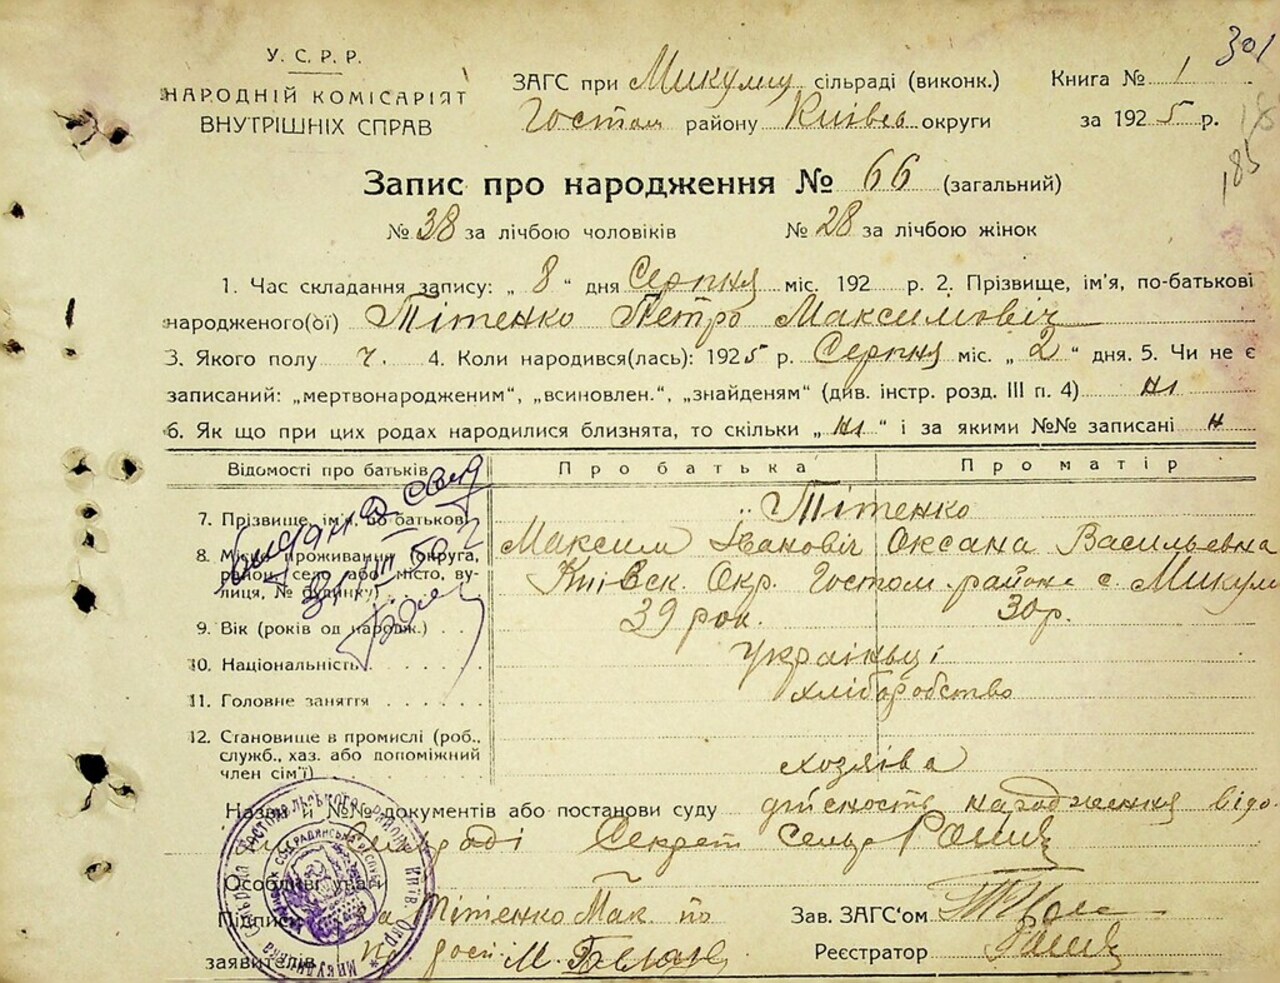 301
У. С. Р. Р.
НАРОДНІЙ КОМІСАРІЯТ
ВНУТРІШНІХ СПРАВ
ЗАГС при Микулиц сільраді (виконк.)
Гостом району Київськ округи
Книга № 1
за 1925 р.
18
185
Запис про народження № 66 (загальний)
№ 38 за лічбою чоловіків № 28 за лічбою жінок
1. Час складання запису: „ 8 “ дня Серпня міс. 192 р. 2. Прізвище, ім'я, по-батькові
народженого(ої) Тітенко Петро Максимовіч
3. Якого полу ч. 4. Коли народився(лась): 1925 р. Серпня міс. „ 2 “ дня. 5. Чи не є
записаний: „мертвонародженим“, „всиновлен.“, „знайденям“ (див. інстр. розд. III п. 4) ні
6. Як що при цих родах народилися близнята, то скільки „ ні “ і за якими №№ записані н
Відомості про батьків Про батька Про матір
7. Прізвище, ім'я, по батькові Тітенко
Максим Івановіч Оксана Васильевна
8. Місце проживання (округа,
район, село або місто, ву-
лиця, № будинку) Київск. Окр. Гостом. района с. Микул
9. Вік (років од народж.) 39 рок. 30 р.
10. Національність Украіньці
11. Головне заняття хліборобство
12. Становище в промислі (роб.,
служб., хаз. або допоміжний
член сім'ї) хозяіва
Назви й №№ документів або постанови суду дійсность народження відо
Сільраді Секрет
Особливі уваги
Підписи за Тітенко Мак. по
заявителів М.
Зав. ЗАГС'ом
Реєстратор